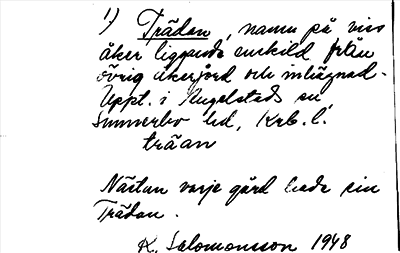 1) Trädan, namn på viss
åker liggande enskild från
övrig åkerjord och inhägnad.
Uppt. i Angelstads sn,
Sunnerbo hd, Krb. l.
träan
Nästan varje gård hade sin
Trädan.
K. Salomonsson 1948